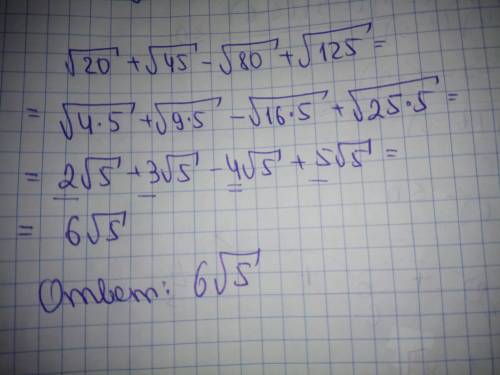 √20 + √45 - √80 + √125 =
= √4·5 + √9·5 - √16·5 + √25·5 =
= 2√5 + 3√5 - 4√5 + 5√5 =
= 6√5
Ответ: 6√5